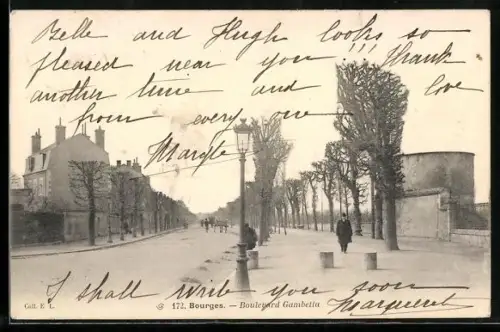 Belle and Hugh looks so
pleased near you !!! Thank
another time and love
from every one
Margte
172. Bourges. — Boulevard Gambetta
Coll. E. L.
I shall write you soon
Marguerite